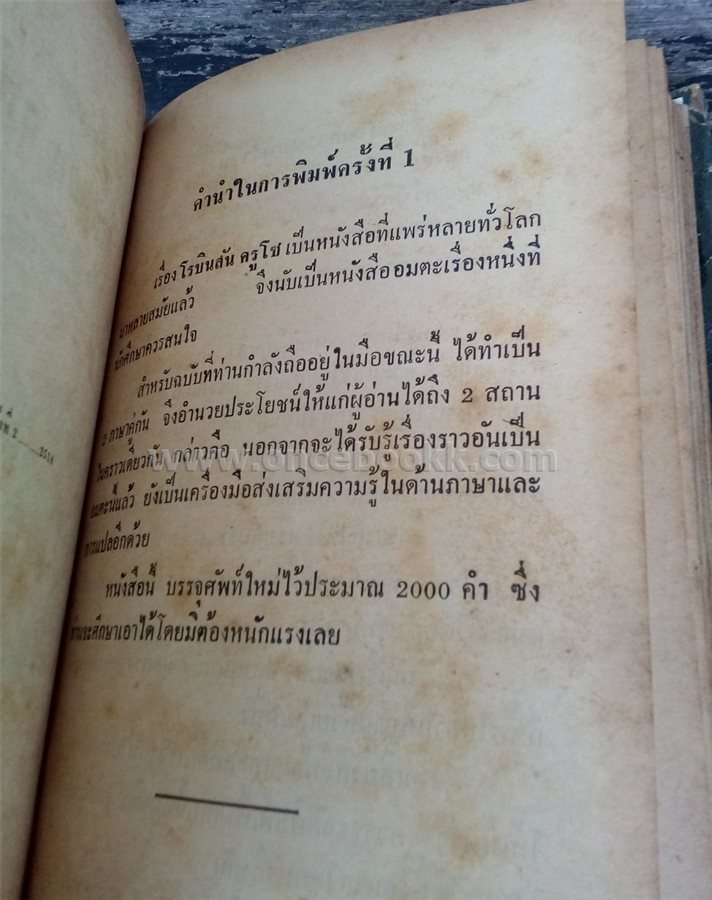 คำนำในการพิมพ์ครั้งที่ 1
เรื่อง โรบินสัน ครูโซ เป็นหนังสือที่แพร่หลายทั่วโลก
มาหลายสมัยแล้ว จึงนับเป็นหนังสืออมตะเรื่องหนึ่งที่
นักศึกษาควรสนใจ
สำหรับฉบับที่ท่านกำลังถืออยู่ในมือขณะนี้ ได้ทำเป็น
2 ภาษาคู่กัน จึงอำนวยประโยชน์ให้แก่ผู้อ่านได้ถึง 2 สถาน
ในคราวเดียวกัน กล่าวคือ นอกจากจะได้รับรู้เรื่องราวอันเป็น
อมตะนี้แล้ว ยังเป็นเครื่องมือส่งเสริมความรู้ในด้านภาษาและ
การแปลอีกด้วย
หนังสือนี้ บรรจุศัพท์ใหม่ไว้ประมาณ 2000 คำ ซึ่ง
ท่านจะศึกษาเอาได้โดยมิต้องหนักแรงเลย
www.oncebookk.com